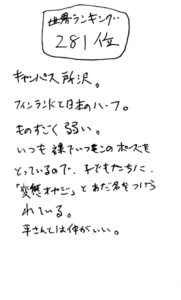 世界ランキング
281位
キャンパス所沢。
フィンランドと日本のハーフ。
ものすごく弱い。
いつも裸でいつもこのポーズを
とっているので、子どもたちに、
「変態オヤジ」とあだ名をつけら
れている。
平さんとは仲がいい。